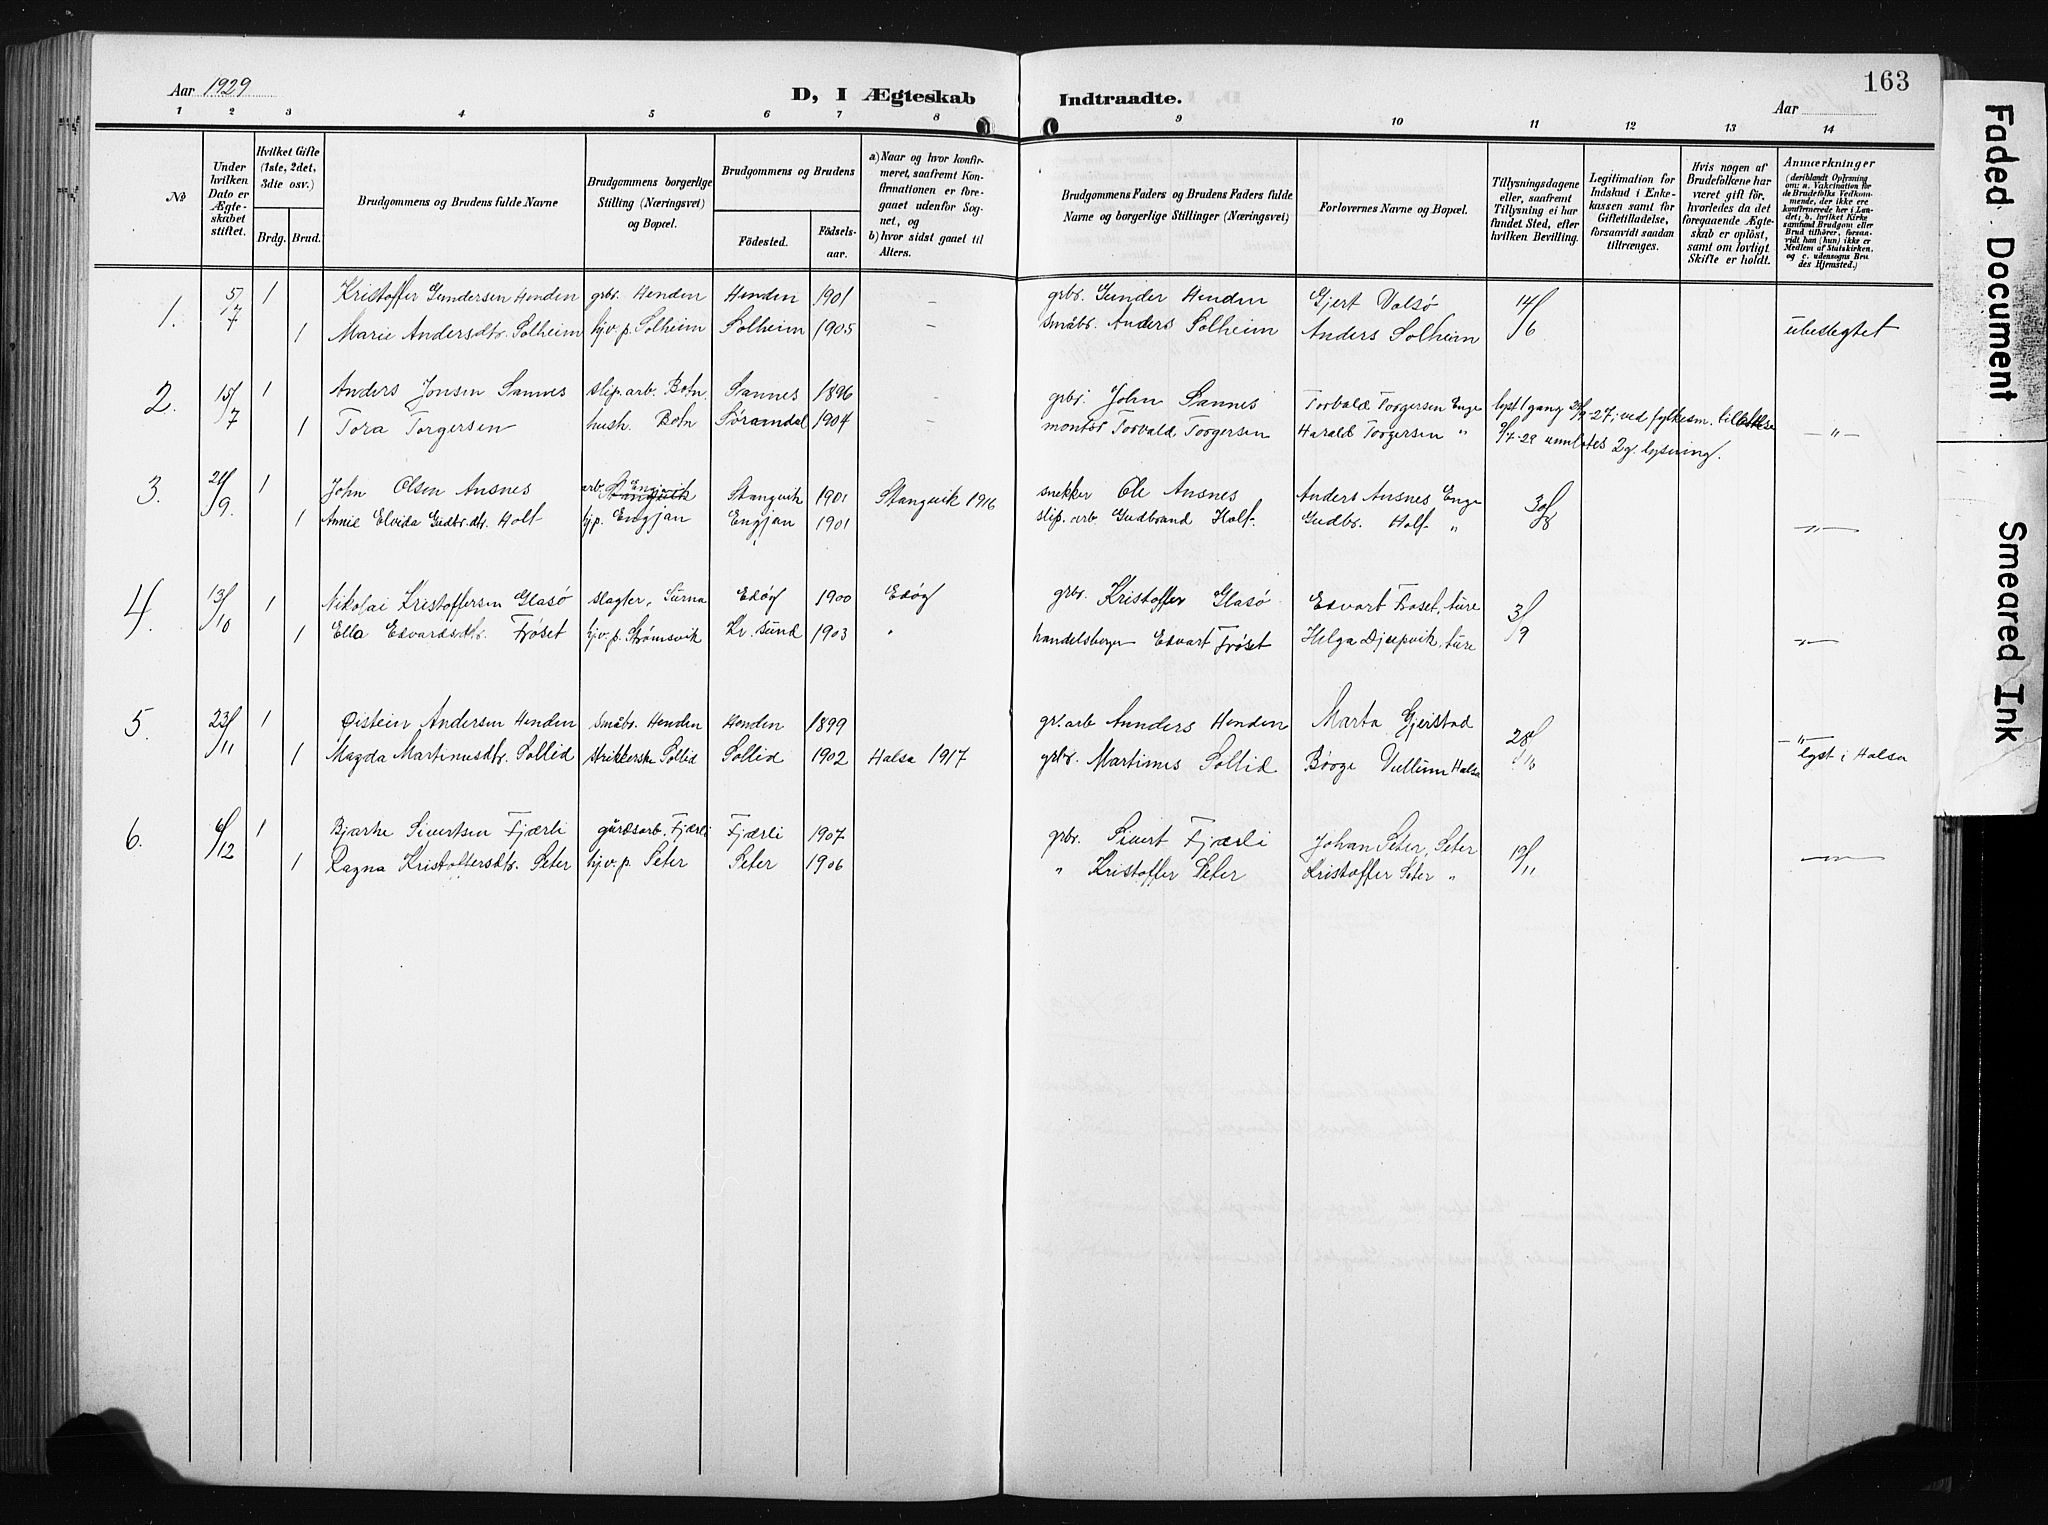 Aar 1929
D, I Ægteskab Indtraadte.
163
Aar
1 2 3 4 5 6 7 8 9 10 11 12 13 14
No
Under hvilken Dato er Ægteskabet stiftet.
Hvilket Gifte (1ste, 2det, 3die osv.)
Brdg. Brud.
Brudgommens og Brudens fulde Navne
Brudgommens borgerlige Stilling (Næringsvei) og Bopæl.
Brudgommens og Brudens
Födested. Födsels-aar.
a) Naar og hvor konfirmeret, saafremt Konfirmationen er foregaaet udenfor Sognet, og
b) hvor sidst gaaet til Alters.
Brudgommens Faders og Brudens Faders fulde Navne og borgerlige Stillinger (Næringsvei)
Forlovernes Navne og Bopæl.
Tillysningsdagene eller, saafremt Tillysning ei har fundet Sted, efter hvilken Bevilling.
Legitimation for Indskud i Enkekassen samt for Giftetilladelse, forsaavidt saadan tiltrænges.
Hvis nogen af Brudefolkene har været gift för, hvorledes da det foregaaende Ægteskab er oplöst, samt om lovligt Skifte er holdt.
Anmærkninger (deriblandt Oplysning om: a. Vakcination for de Brudefolks Vedkommende, der ikke ere konfirmerede her i Landet; b. hvilket Kirkesamfund Brudgom eller Brud tilhörer, forsaavidt han (hun) ikke er Medlem af Statskirken, og c. udensogns Brudes Hjemsted.)
1. 5/7 1 Kristoffer Gundersen Henden grbr. Henden Henden 1901 – grbr. Gunder Henden Gjert Valsø 14/6
1 Marie Andersdtr. Solheim hjv. p. Solheim Solheim 1905 – Småbr. Anders Solheim Anders Solheim ubeslegtet
2. 15/7 1 Anders Jonsen Sannes slip. arb. Botn Sannes 1896 grbr. John Sannes Torvald Torgersen Enge lyst 1 gang
1 Tora Torgersen hush. Botn Søramdal 1904 – montør Torvald Torgersen Harald Torgersen " 2 g. lysning. – " –
3. 21/9 1 John Olsen Ansnes arb. Engjan Stangvik Stangvik 1901 Stangvik 1916 snekker Ole Ansnes Anders Ansnes Enge 30/8
1 Annie Elvida Gudbr. dtr. Holt hjp. Engjan Engjan 1901 slip. arb Gudbrand Holt Gudbr. Holt " – " –
4. 13/10 1 Nikolai Kristoffersen Glasø slagter, Surna Edøy 1900 Edøy grbr. Kristoffer Glasø Edvart Frøset, ture 3/9
1 Ella Edvardsdtr. Frøset hjv. p. Strømsvik Kr. sund 1903 " handelsborger Edvart Frøset Helga Djupvik, ture – " –
5. 23/11 1 Øistein Andersen Henden Småbr. Henden Henden 1899 gr. arb Annders Henden Marta Gjerstad 28/
1 Magda Martinusdtr. Sollid strikkerske Sollid Sollid 1902 Halsa 1917 grbr. Martinus Sollid Børge Vullum Halsa – " – lyst i Halsa
6. 6/12 1 Bjarke Sivertsen Fjærli gårdsarb. Fjærli Fjærli 1907 grbr. Sivert Fjærli Johan Seter, Seter 19/11
1 Ragna Kristoffersdtr. Seter hjv. p. Seter Seter 1906 " Kristoffer Seter Kristoffer Seter " – " –
Faded Document
Smeared Ink